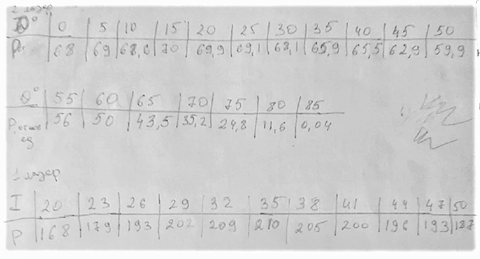 2 лазер
θ° | 0 | 5 | 10 | 15 | 20 | 25 | 30 | 35 | 40 | 45 | 50
68 | 69 | 68,6 | 70 | 69,9 | 69,1 | 68,1 | 65,9 | 65,5 | 62,9 | 59,9
θ° | 55 | 60 | 65 | 70 | 75 | 80 | 85
56 | 50 | 43,5 | 35,2 | 24,8 | 11,6 | 0,04
ед
1 лазер
I | 20 | 23 | 26 | 29 | 32 | 35 | 38 | 41 | 44 | 47 | 50
P | 168 | 179 | 193 | 202 | 209 | 210 | 205 | 200 | 196 | 193 | 187